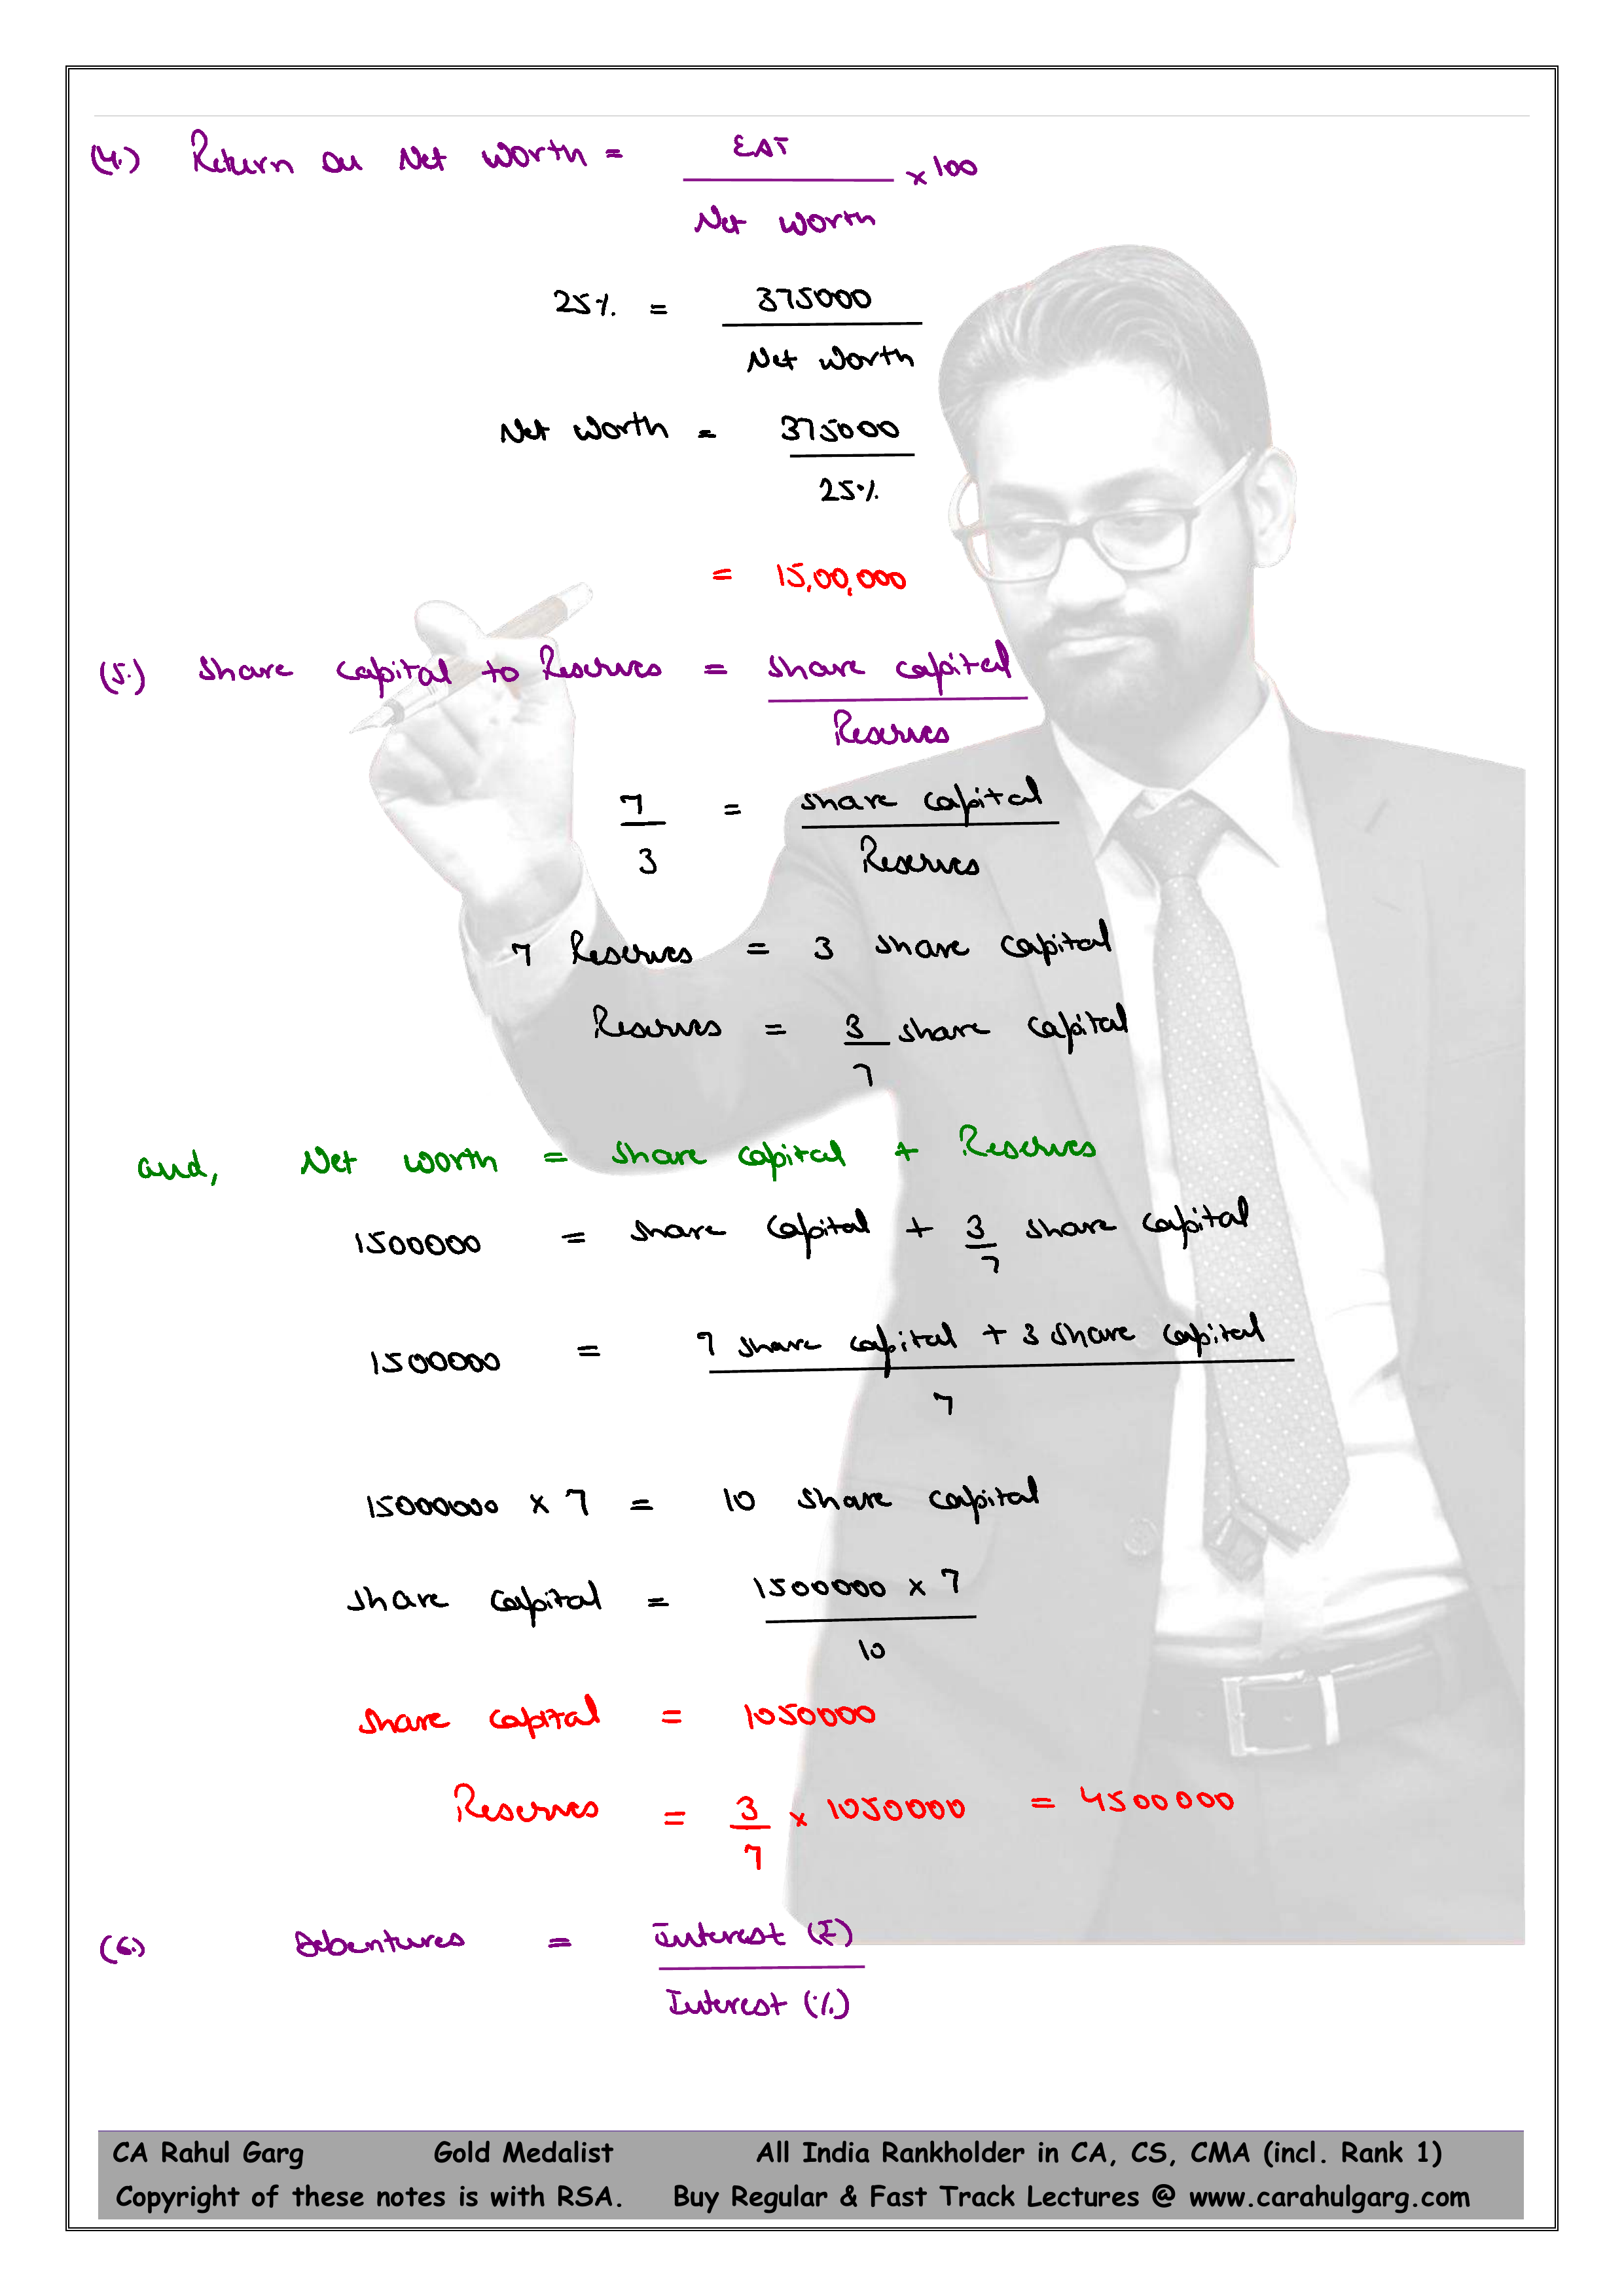 (4.) Return on Net Worth = EAT
Net Worth × 100
25% = 375000
Net Worth
Net Worth = 375000
25%
= 15,00,000
(5.) Share Capital to Reserves = Share Capital
Reserves
7/3 = Share Capital
Reserves
7 Reserves = 3 Share Capital
Reserves = 3/7 Share Capital
and, Net Worth = Share Capital + Reserves
1500000 = Share Capital + 3/7 Share Capital
1500000 = 7 Share Capital + 3 Share Capital
7
15000000 × 7 = 10 Share Capital
Share Capital = 1500000 × 7
10
Share Capital = 1050000
Reserves = 3/7 × 1050000 = 4500000
(6.) Debentures = Interest (₹)
Interest (%)
CA Rahul Garg Gold Medalist All India Rankholder in CA, CS, CMA (incl. Rank 1)
Copyright of these notes is with RSA. Buy Regular & Fast Track Lectures @ www.carahulgarg.com